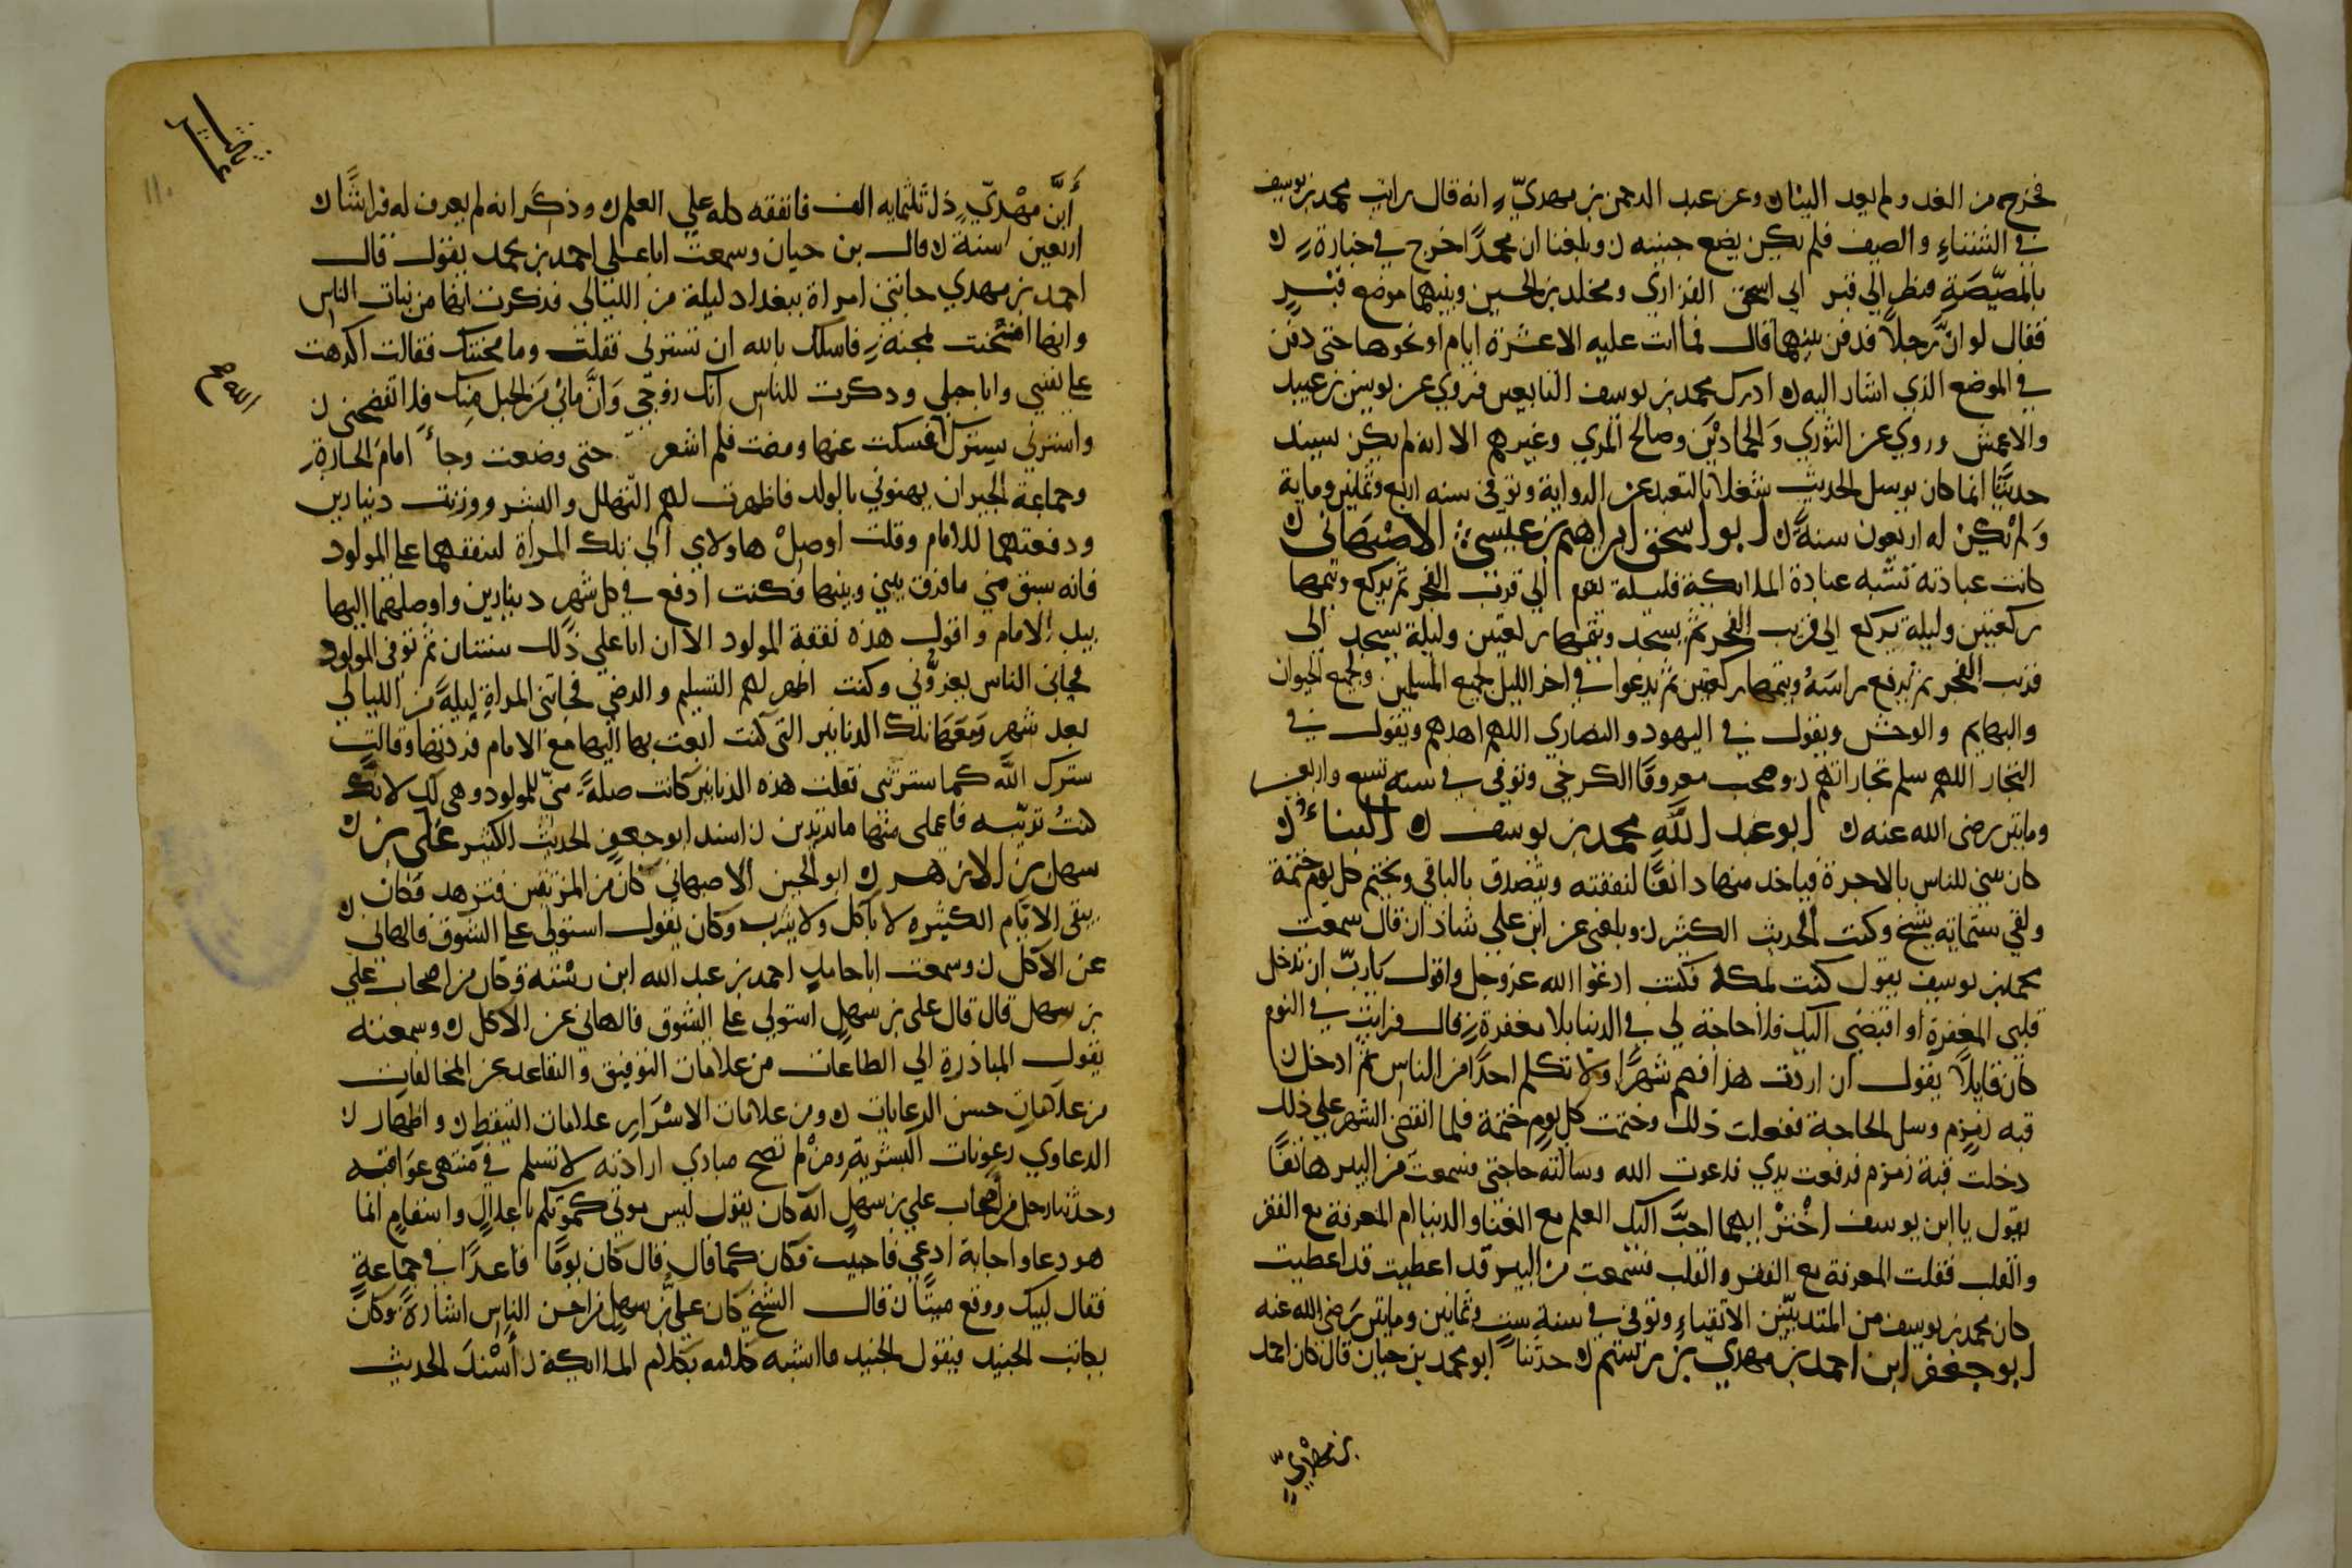 فخرج من الغد ولم يعد الينا ن وعن عبد الرحمن بن مهدي انه قال رايت محمد بن يوسف
في الشتاء والصيف فلم يكن يضع جنبه ن وبلغنا ان محمدا خرج في جنازة
بالمصيصة فنظر الي قبر ابي اسحق الفزاري ومخلد بن الحسين وبينهما موضع قبر
فقال لو ان رجلا فدفن بينهما قال فما اتت عليه الا عشرة ايام او نحوها حتى دفن
في الموضع الذي اشار اليه ن ادرك محمد بن يوسف التابعين فروي عن يونس بن عبيد
والاعمش وروي عن الثوري والحمادين وصالح المري وغيرهم الا انه لم يكن يسند
حديثا انما كان يرسل الحديث شغلا بالتعبد عن الرواية وتوفي سنه اربع وثمنين وماية
ولم تكن له اربعون سنة ن ابو اسحق ابراهيم بن عيسى الاصبهاني ن
كانت عبادته تشبه عبادة الملائكة فليلة يقوم الي قرب الفجر ثم يركع ويتمها
ركعتين وليلة يركع الي قرب الفجر ثم يسجد ويتمها ركعتين وليلة يسجد الى
قرب الفجر ثم يرفع راسه ويتمها ركعتين ثم يدعوا في اخر الليل لجميع المسلمين ولجميع الحيوان
والبهايم والوحش ويقول في اليهود والنصاري اللهم اهدهم ويقول في
التجار اللهم سلم تجاراتهم ن وصحب معروفا الكرخي وتوفي في سنه تسع واربعين
ومايتين رضى الله عنه ن ابو عبد الله محمد بن يوسف ن البناء ن
كان يبني للناس بالاجرة فياخذ منها دانقا لنفقته ويتصدق بالباقي ويختم كل يوم ختمة
ولقي ستماية شيخ وكتب الحديث الكثير ن وبلغني عن ابن علي شاذان قال سمعت
محمد بن يوسف يقول كنت بمكه فكنت ادعوا الله عز وجل واقول يا رب ان تدخل
قلبى المغفرة او اقبضني اليك فلا حاجة لي في الدنيا بلا مغفرة قال فرايت في النوم
كان قايلا يقول ان اردت هذا فصم شهرا ولا تكلم احدا من الناس ثم ادخل ن
قبه زمزم وسل الحاجة ففعلت ذلك وختمت كل يوم ختمة فلما انقضى الشهر علي ذلك
دخلت قبة زمزم فرفعت يدي فدعوت الله وسالته حاجتي فسمعت من البير هاتفا
يقول يا ابن يوسف اختر ايهما احب اليك العلم مع الغنا والدنيا ام المعرفة مع الفقر
والقلب فقلت المعرفة مع الفقر والقلب فسمعت من البير قد اعطيت قد اعطيت
كان محمد بن يوسف من المتديبين الاتقياء وتوفي في سنة ست وثمانين ومايتين رضى الله عنه
ابو جعفر ابن احمد بن مهدي بن رستم ن حدثنا ابو محمد بن حيان قال كان احمد
بن مهدي
ابن مهدي ذل ثلثمايه الف فانفقه كله علي العلم ن وذكر انه لم يعرف له فراشا ن
اربعين سنة ن قال بن حيان وسمعت ابا علي احمد بن محمد يقول قال
احمد بن مهدي جاتني امراة ببغداد ليلة من الليالي فذكرت انها من بنات الناس
وانها امتحنت بمحنة فاسلك بالله ان تسترني فقلت وما محنتك فقالت اكرهت
على نفسي وانا حبلي وذكرت للناس انك زوجي وان مابي من الحبل منك فلا تفضحني ن
واسترني يسترك فسكت عنها ومضت فلم اشعر حتى وضعت وجاء امام الحارة
وجماعة الجيران يهنوني بالولد فاظهرت لهم التهلل والبشر ووزنت دينارين
ودفعتهما للامام وقلت اوصل هاولاي الي تلك المراة لينفقهما على المولود
فانه سبق مني ما فرق بيني وبينها فكنت ادفع في كل شهر دينارين واوصلهما اليها
بيد الامام واقول هذه نفقة المولود الا ان اتا علي ذلك سنتان ثم توفي المولود
فجاني الناس يعزوني وكنت اظهر لهم التسليم والرضي فجاتني المراة ليلة من الليالي
بعد شهر ومعها تلك الدنانير التى كنت ابعث بها اليها مع الامام فردتها وقالت
سترك الله كما سترتنى فقلت هذه الدنانير كانت صلة مني للمولود وهى لك لانك
كنت ترثيه فاعملى منها ما تريدين ن اسند ابو جعفر الحديث الكثير على بن ن
سهل بن الازهر ن ابو الحسن الاصبهاني كان من المترفين فتزهد فكان ن
يبقى الايام الكثيره لا ياكل ولا يشرب وكان يقول استولى على الشوق فالهاني
عن الاكل ن وسمعت ابا حامد احمد بن عبد الله ابن رسته وكان من اصحاب علي
بن سهل قال قال على بن سهل استولي على الشوق فالهاني عن الاكل ن وسمعته
يقول المبادرة الي الطاعات من علامات التوفيق والتقاعد عن المخالفات
من علامات حسن الرعايات ن ومن علامات الاسرار علامات التيقظ ن واظهار ن
الدعاوي رعونات البشرية ومن لم تصح مبادي ارادته لا تسلم في منتهى عواقبه
وحدثنا رجل من اصحاب علي بن سهل انه كان يقول ليس موتي كموتكم باعلال واسقام انما
هو دعا واجابة ادعي فاجيب فكان كما قال قال كان يوما قاعدا في جماعة
فقال لبيك ووقع ميتا ن قال الشيخ كان علي بن سهل من احسن الناس اشارة وكان
يكاتب الجنيد فيقول الجنيد ما اشبه كلامه بكلام الملائكة ن اسند الحديث